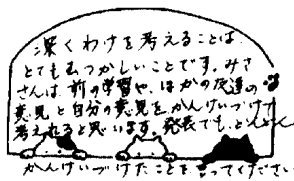 深くわけを考えることは、
とてもむつかしいことです。みさ
さんは、前の学習や、ほかの友達の
意見と自分の意見を、かんけいづけて
考えれると思います。発表でも、どんどん
かんけいづけたことを言ってください